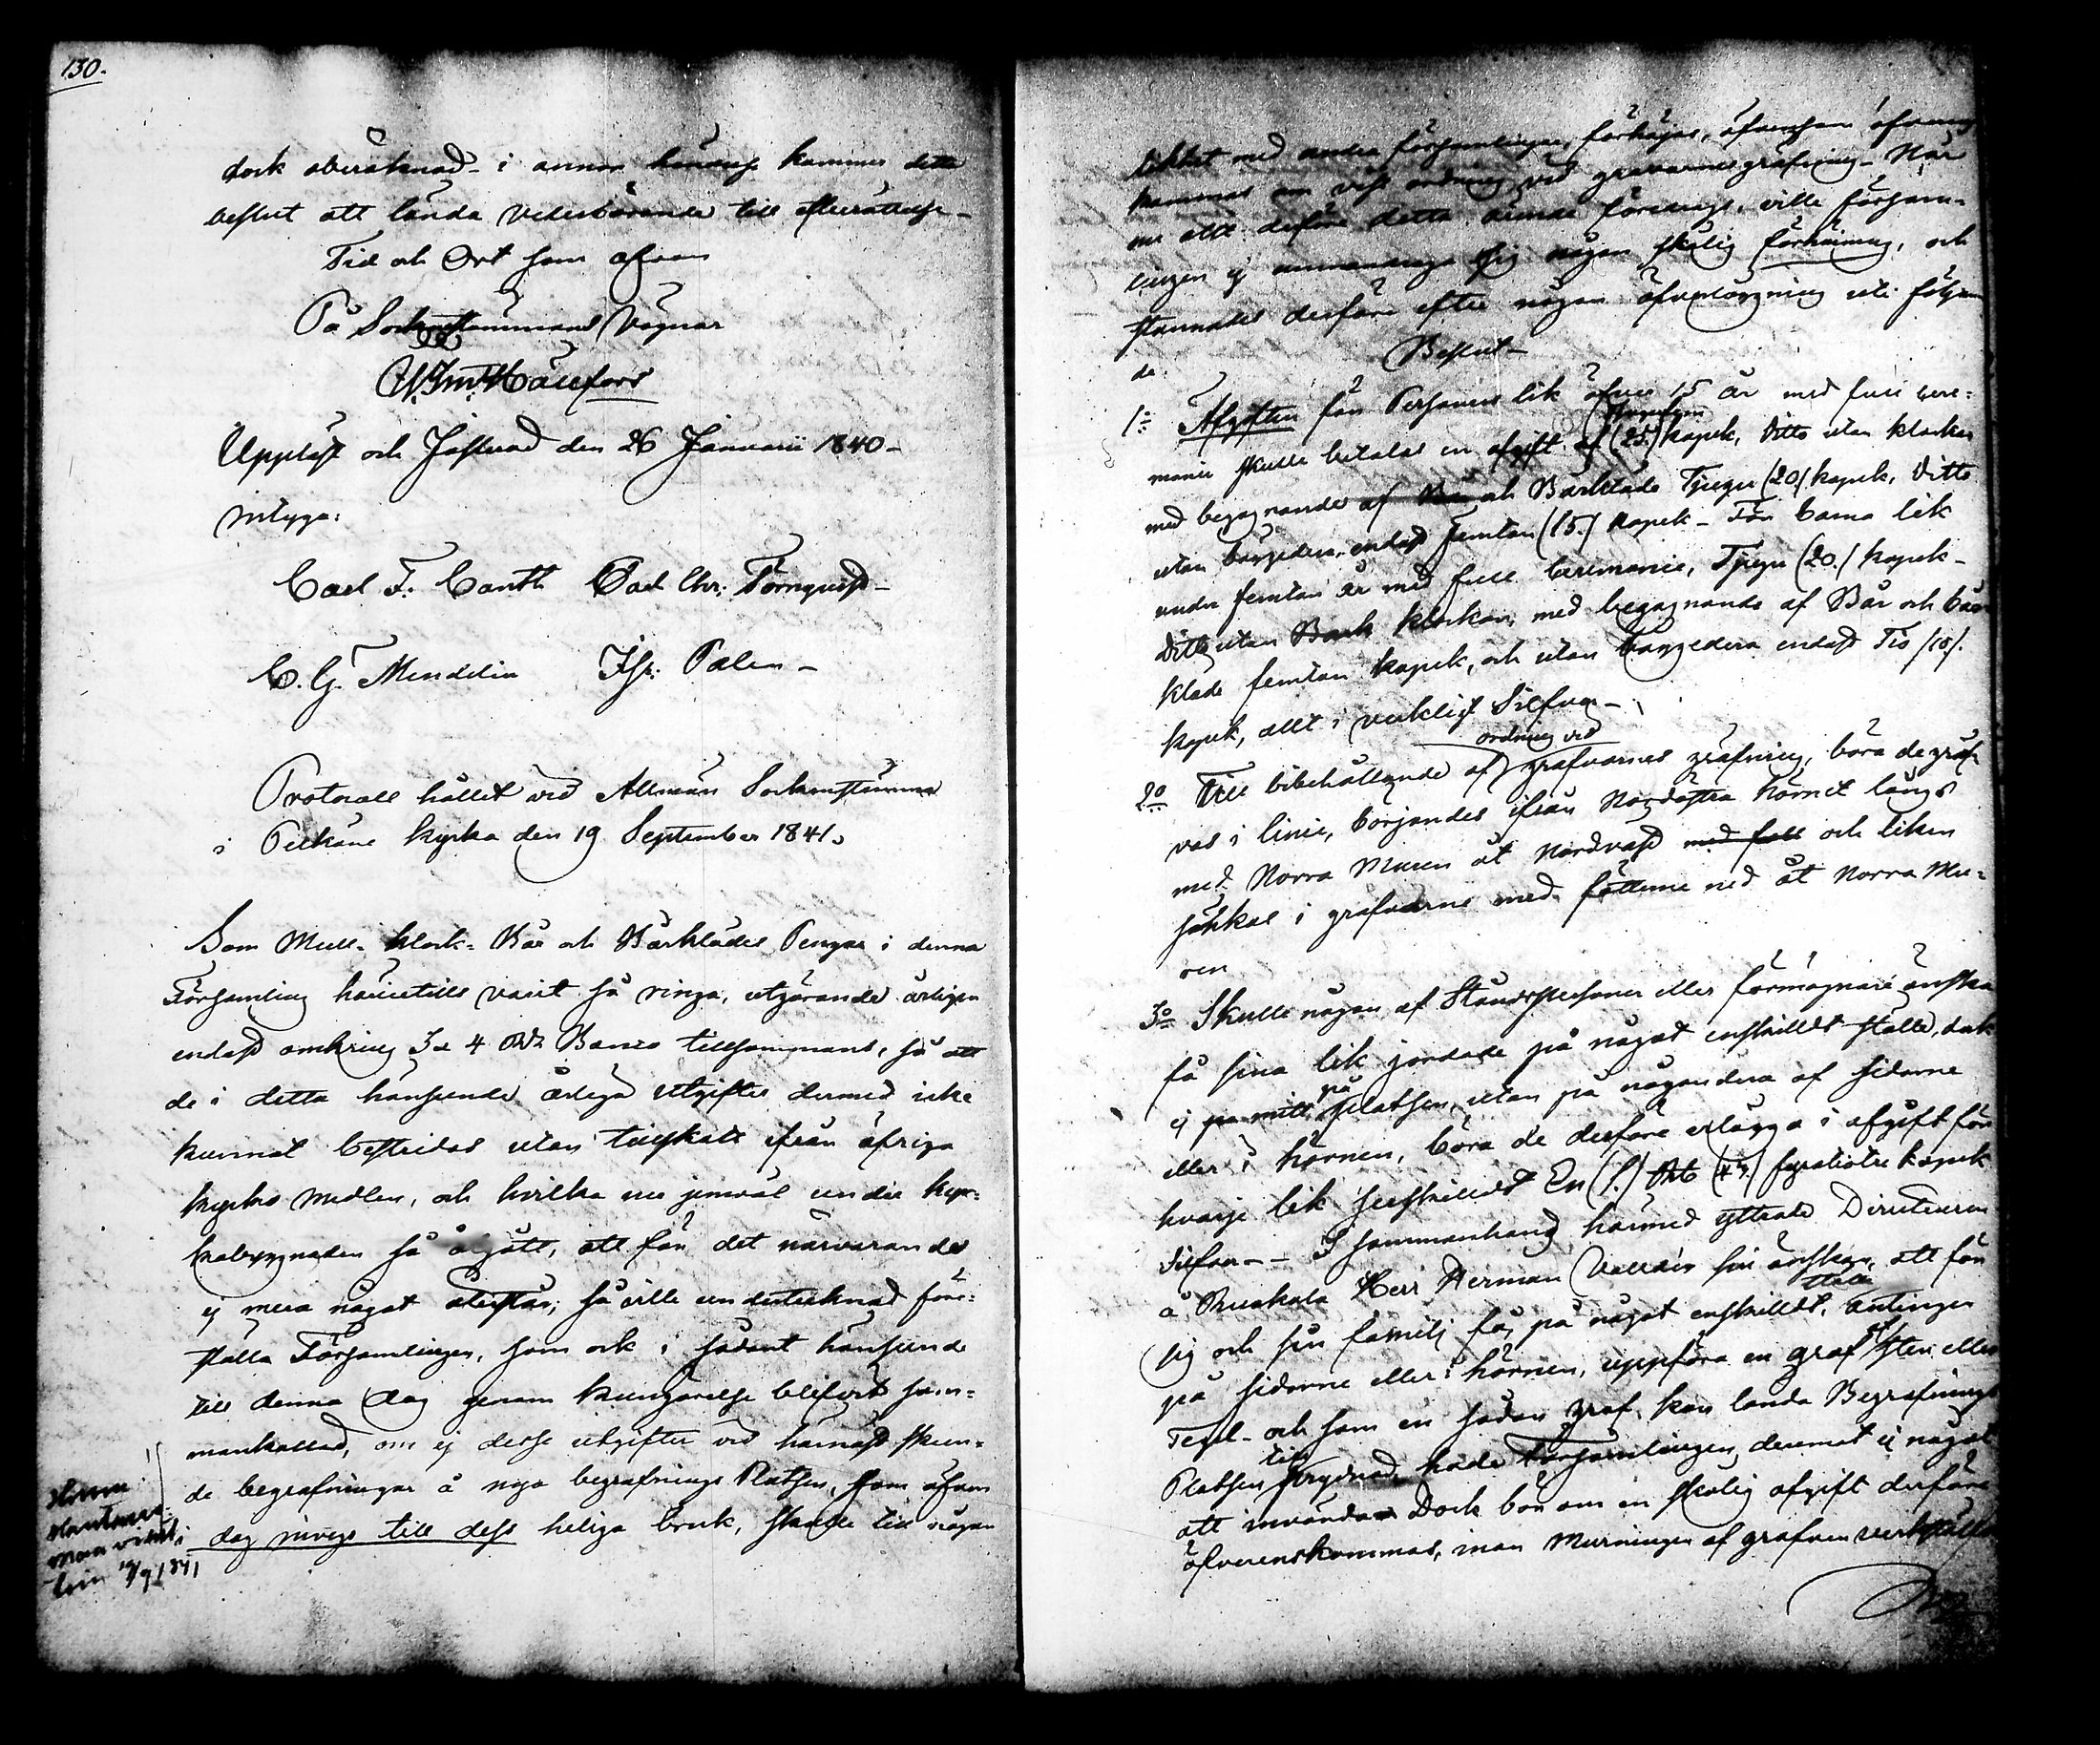 130.
dock oberäknad - i annor händelse kommer detta
beslut att lända Vederbörande till efterrättelse -
Tid och Ort som ofvan
På Sockenstämmans Vägnar
Uppläst och Justerad den 26 Januarii 1840 -
intyga:
Carl F. Canth Carl Chr. Törnqvist -
C. G. Mendelin Palen -
Protocoll hållet vid Allmän Sockenstämma
i Pelkäne kyrka den 19 September 1841.
Som Mull- klock- Bår och Bårklädes Pengar i denna
Församling härintills varit så ringa, utgörande årligen
endast omkring 3 a 4 Rdr Banco tillsammans, så att
de i detta hänseende årliga utgifter dermed icke
kunnat bestridas utan tillskott ifrån öfriga
kyrko medlen, och hvilka nu jemväl under kyr-
kobyggnaden så åtgått, att för det närvarande
ej mera något återstår; så ville undertecknad före-
ställa Församlingen, som ock i sådant hänseende
till denna dag genom kungörelse blifvit sam-
mankallad, om ej desse utgifter vid härnäst skeen-
de begrafningar å nya begrafnings Platsen, som äfven
dag inviges till dess heliga bruk, skulle till någon
vihit.
19/9 1841
likhet med andra församlingar, förhöjas, äfvensom öfverens-
kommas om viss ordning vid grafvarnes gräfning - När
nu allt derföre detta ärende föredrogs, ville försam-
lingen ej undandraga sig någon skälig förhöjning, och
stannades derföre efter någon öfverläggning uti följan
de Beslut -
1:o Afgiften för Personers lik öfver 15 år med full cere-
monie skulle betalas en afgift af (25.) kopek, Ditto utan klockor
med begagnande af Bår och Bårkläde Tjugu (20.) kopek, Ditto
utan bäggedera endast femton (15.) kopek - För barna lik
under femton år med full Ceremonie, Tjugu (20.) kopek -
Ditto utan klockor, med begagnande af Bår och bår
kläde femton kopek, och utan bäggedera endast Tio (10.)
kopek, allt i verkligt Silfver -
ordning vid
2:o Till bibehållande af grafvarnes gräfning, böra de gräf-
vas i linie, börjandes ifrån Nordöstra hörnet längs
med Norra Muren åt Nordvest med full och liken
sänkas i grafvarne med fötterne ned åt Norra Mu-
ren
3:o Skulle någon af Ståndspersoner eller förmögnare önska
få sina lik jordade på något enskilldt ställe, dock
ej på midt på platsen, utan på någondera af sidorne
eller i hörnen, böra de derföre erlägga i afgift för
hvarje lik serskilldt En (1.) Rub (43.) fyratiotre kopek
Silfver - I sammanhang härmed yttrade Directeuren
å Ruokola Herr Herman Walleen sin önskan, att för
sig och sin familj få, på något enskilldt ställe antingen
på sidorne eller i hörnen, uppföra en graf af Sten eller
Tegel - och som en sådan graf kan lända Begrafnings
Platsen till prydnad, hade Församlingen deremot ej något
att invända - Dock bör om en skälig afgift derföre
öfverenskommas, innan Murningen af grafven verkställes